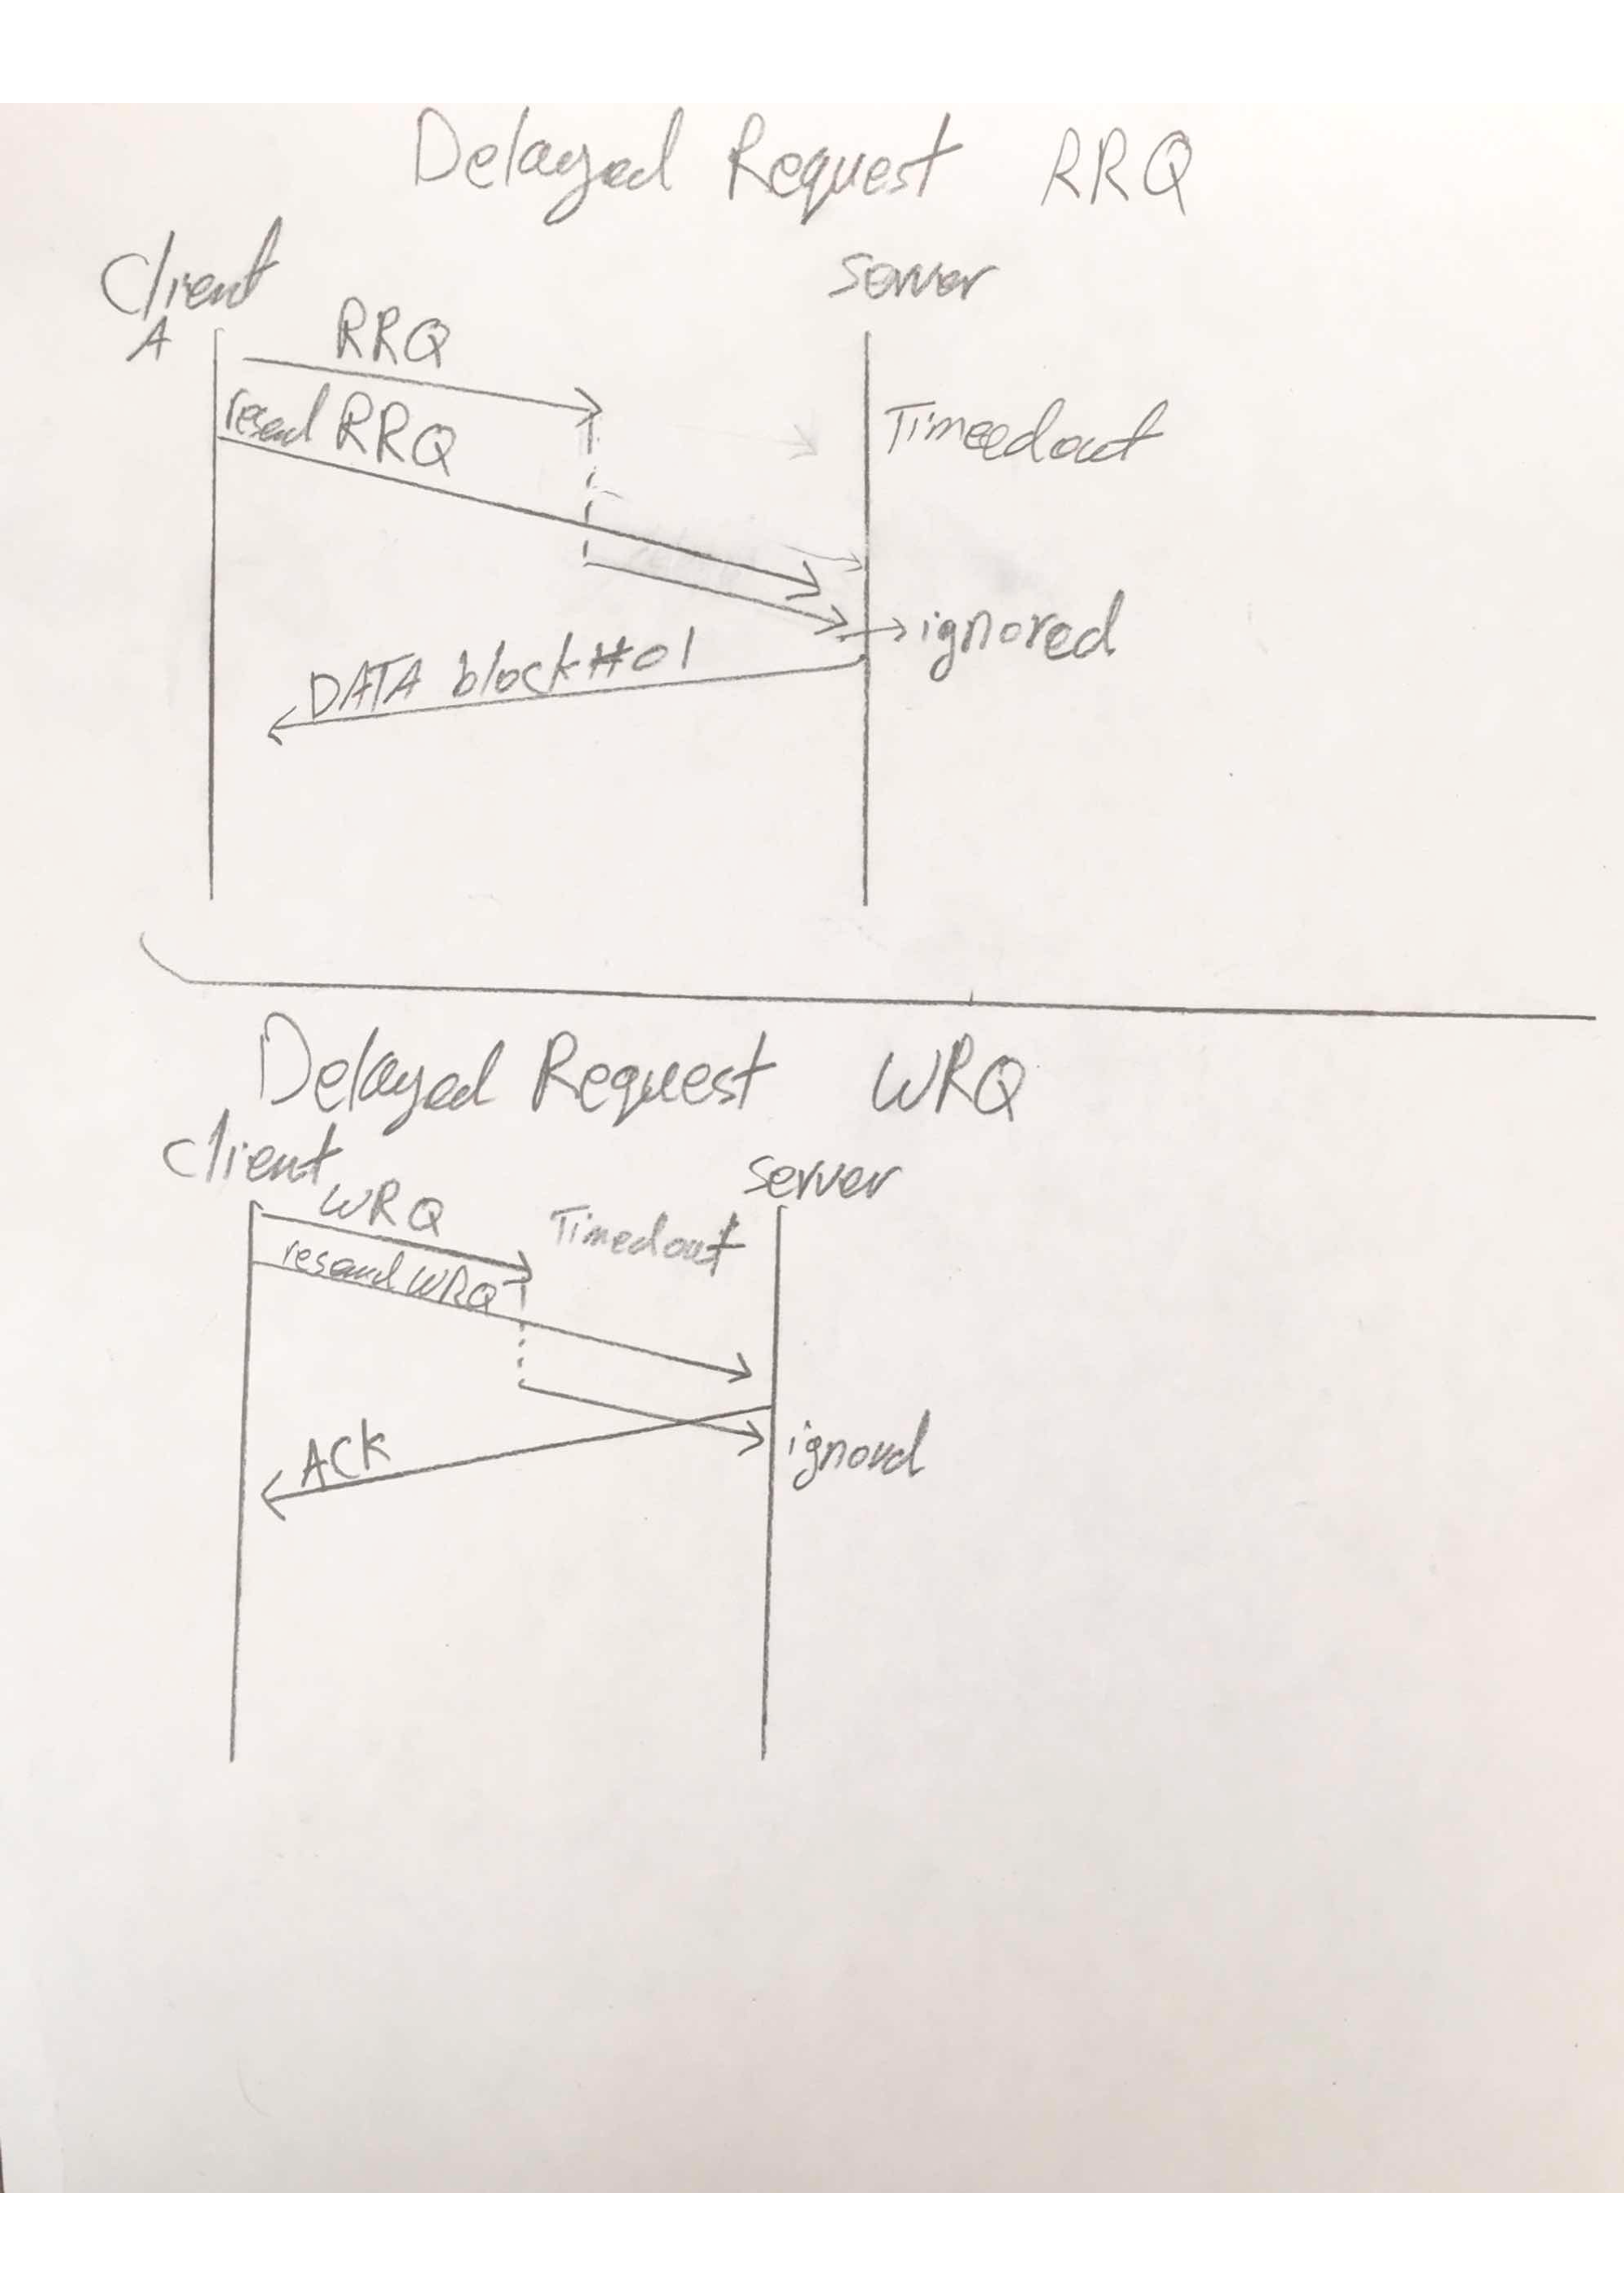 Delayed Request RRQ
Client
A
server
RRQ
resend RRQ
Timeedout
ignored
DATA block#01
Delayed Request WRQ
client
server
WRQ
Timedout
resend WRQ
ignord
ACK